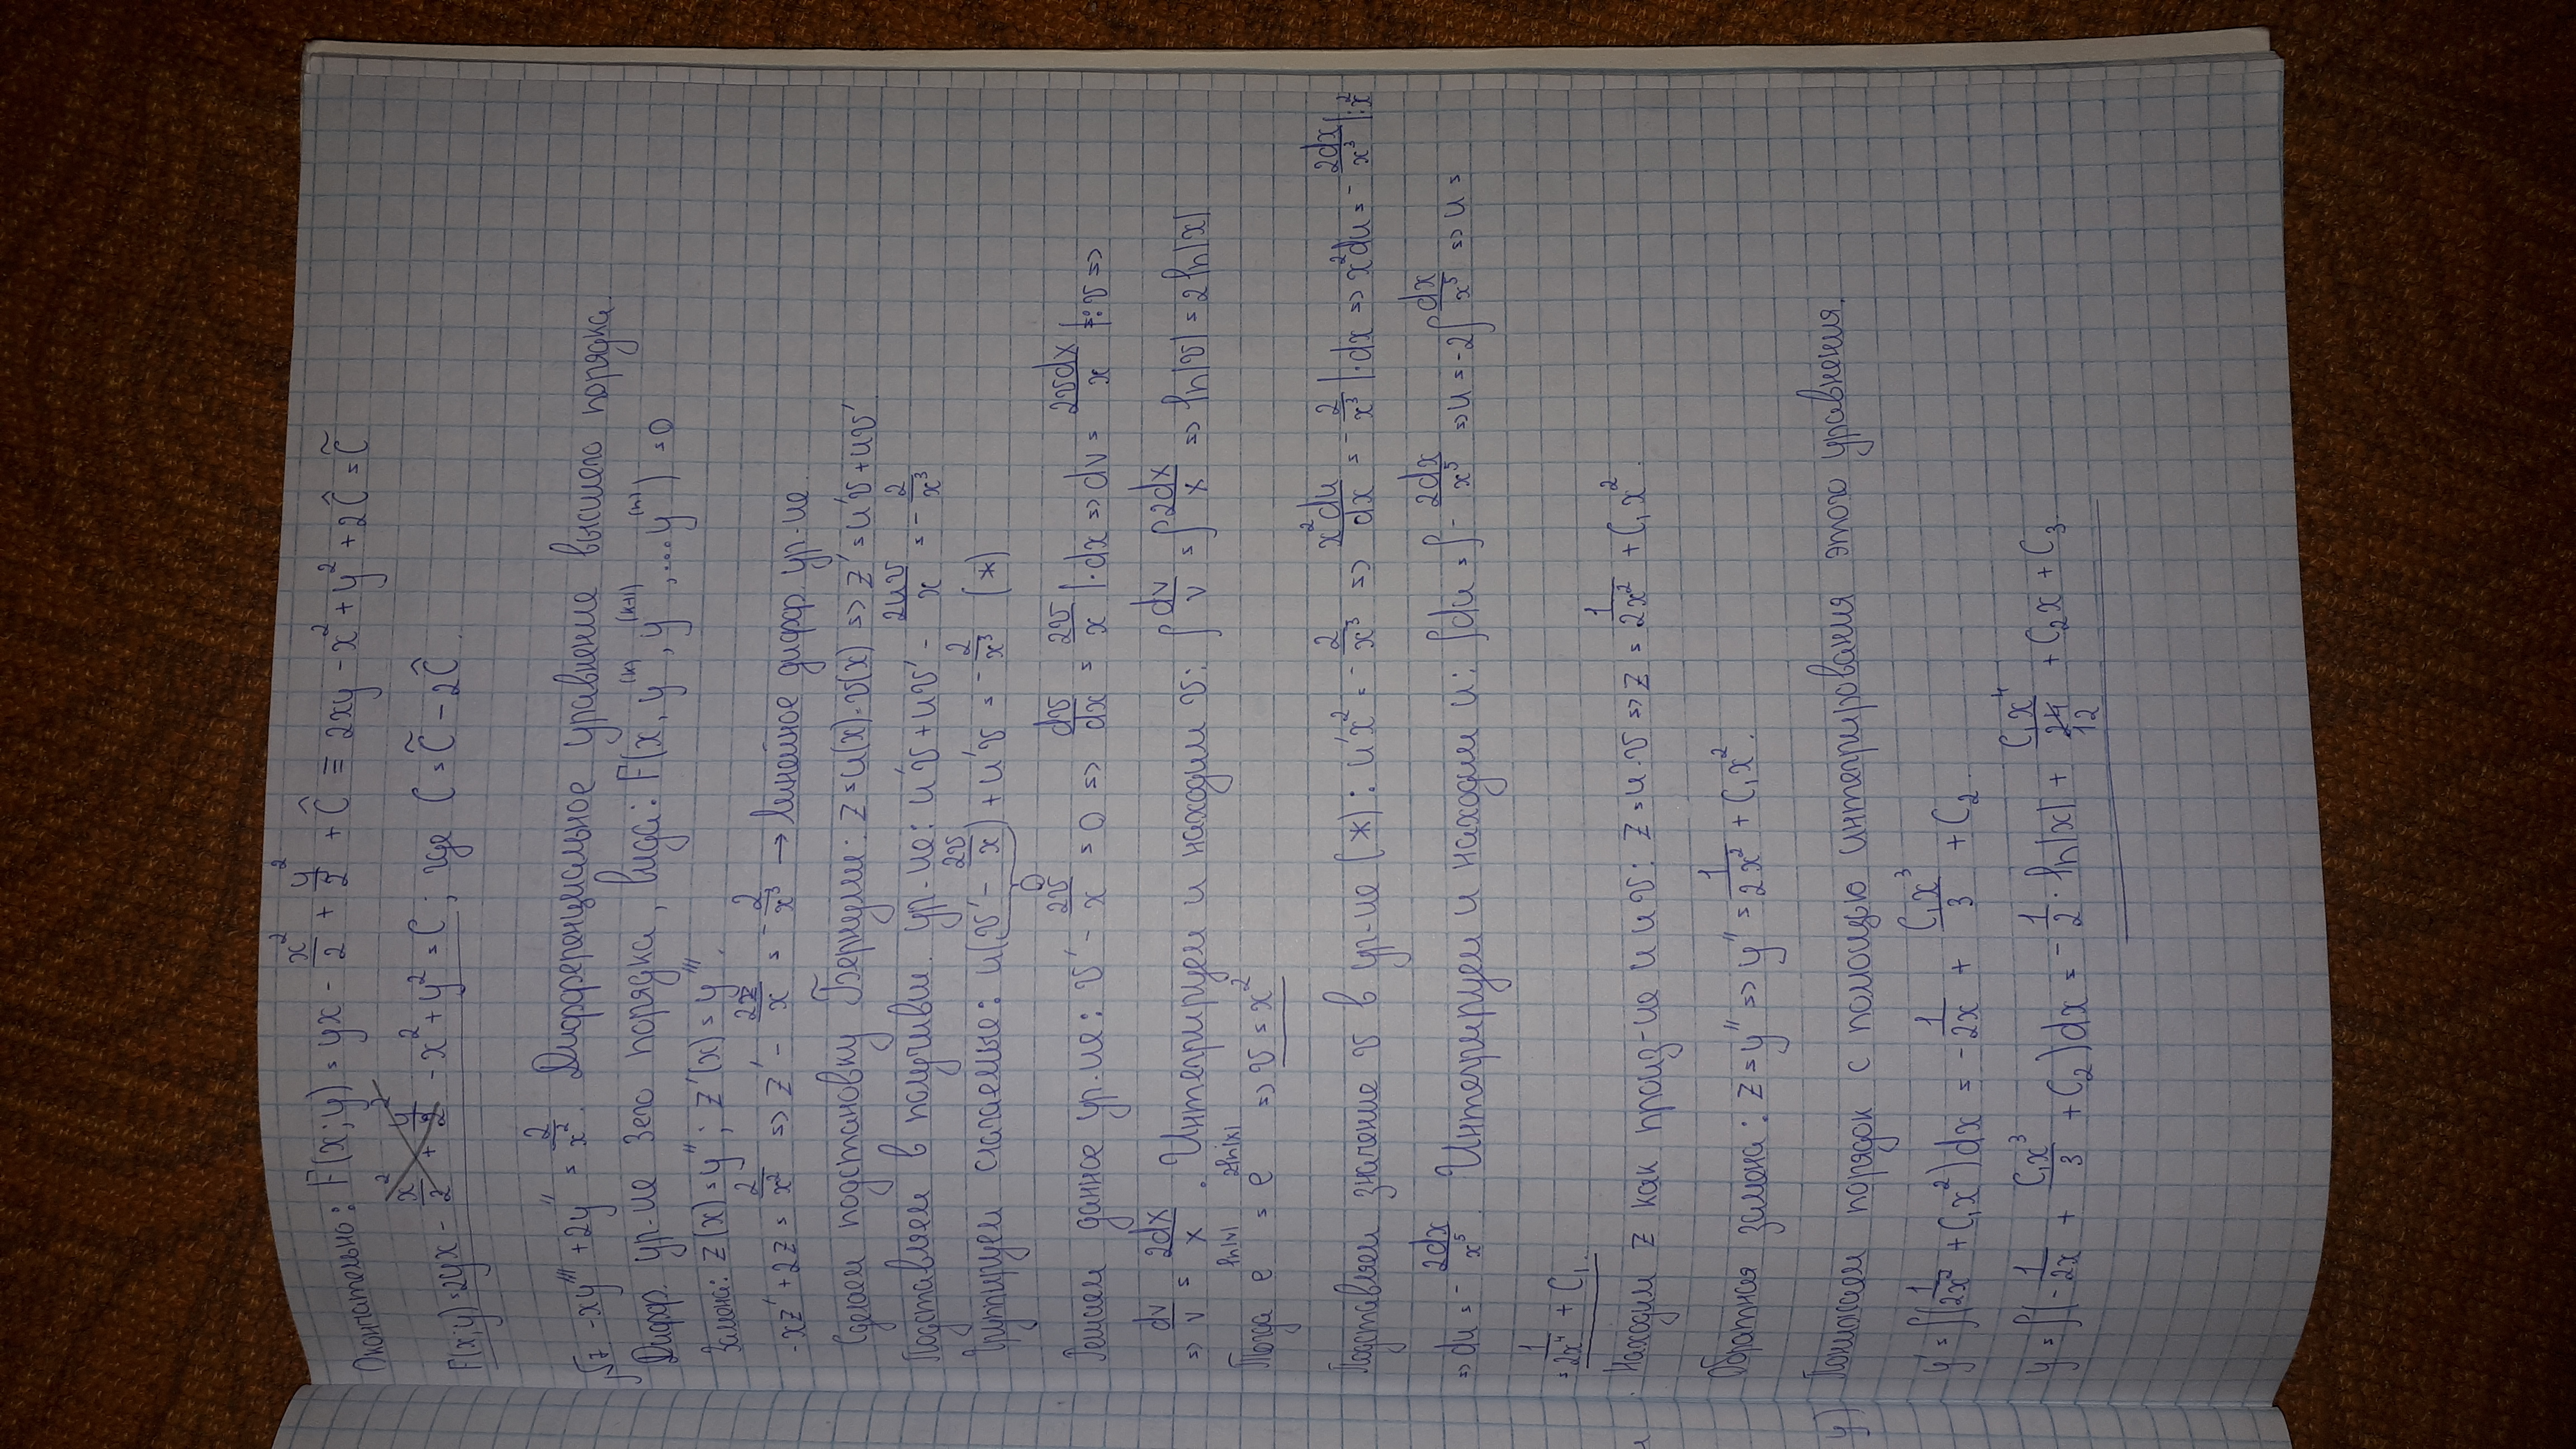 Окончательно: F(x;y) = yx - x²/2 + y²/2 + Ĉ ≡ 2xy - x² + y² + 2Ĉ = C̃
F(x;y) = 2yx - x²/2 + y²/2 - x² + y² = C; где C = C̃ - 2Ĉ.
√7 -xy''' + 2y'' = 2/x². Дифференциальное уравнение высшего порядка.
Дифф. ур-ие 3его порядка, вида: F(x, y^(k), y^(k+1), ... y^(n)) = 0
Замена: z(x) = y''; z'(x) = y'''.
-xz' + 2z = 2/x² => z' - 2z/x = -2/x³ → линейное дифф. ур-ие.
Сделаем подстановку Бернулли: z = u(x)·v(x) => z' = u'v + uv'
Подставляем в получивш. ур-ие: u'v + uv' - 2uv/x = -2/x³
Группируем слагаемые: u(v' - 2v/x) + u'v = -2/x³ (*)
0
Решаем данное ур-ие: v' - 2v/x = 0 => dv/dx = 2v/x |·dx => dv = 2vdx/x |:v =>
=> dv/v = 2dx/x. Интегрируем и находим v: ∫dv/v = ∫2dx/x => ln|v| = 2ln|x|
Тогда e^ln|v| = e^2ln|x| => v = x²
Подставляем значение v в ур-ие (*): u'x² = -2/x³ => x²du/dx = -2/x³ |·dx => x²du = -2dx/x³ |:x²
=> du = -2dx/x⁵. Интегрируем и находим u: ∫du = ∫-2dx/x⁵ => u = -2∫dx/x⁵ => u =
= 1/2x⁴ + C₁.
Находим z как произ-ие u и v: z = u·v => z = 1/2x² + C₁x².
Обратная замена: z = y'' => y'' = 1/2x² + C₁x².
y) Понижаем порядок с помощью интегрирования этого уравнения.
y' = ∫(1/2x² + C₁x²)dx = -1/2x + C₁x³/3 + C₂.
y = ∫(-1/2x + C₁x³/3 + C₂)dx = -1/2·ln|x| + C₁x⁴/24 12 + C₂x + C₃.